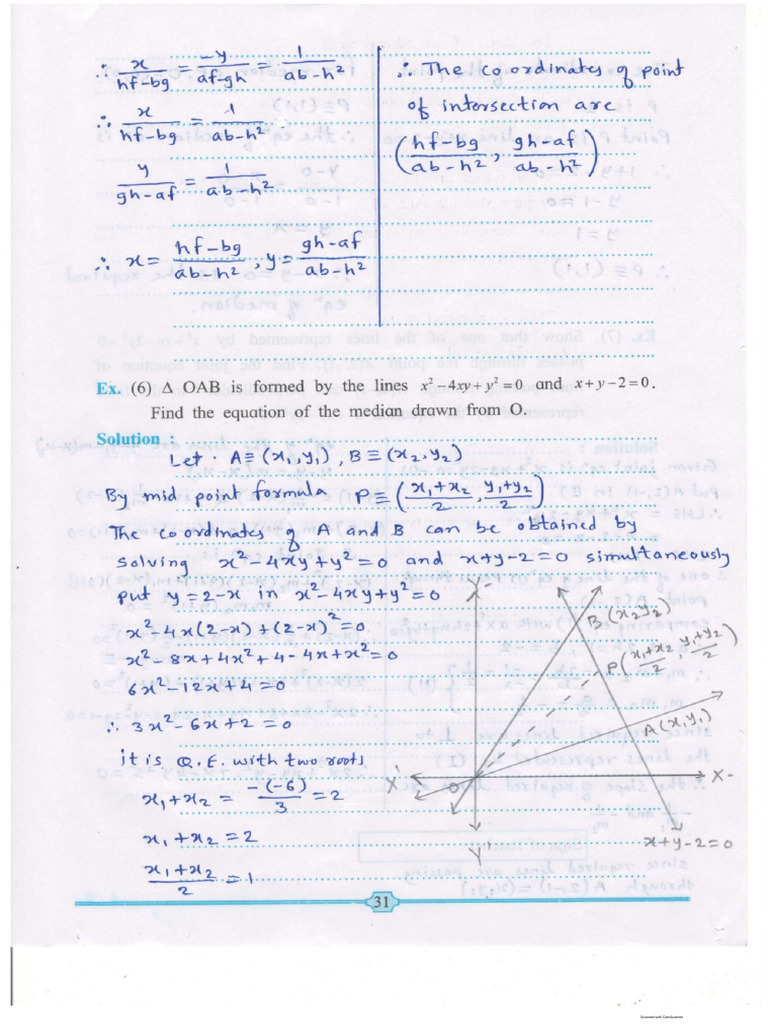 ∴ x/(hf-bg) = -y/(af-gh) = 1/(ab-h²)
∴ x/(hf-bg) = 1/(ab-h²)
y/(gh-af) = 1/(ab-h²)
∴ x = (hf-bg)/(ab-h²), y = (gh-af)/(ab-h²)
∴ The coordinates of point
of intersection are
((hf-bg)/(ab-h²), (gh-af)/(ab-h²))
Ex. (6) Δ OAB is formed by the lines x²-4xy+y²=0 and x+y-2=0.
Find the equation of the median drawn from O.
Solution :
Let A≡(x₁,y₁), B≡(x₂,y₂)
By mid point formula P≡((x₁+x₂)/2, (y₁+y₂)/2)
The coordinates of A and B can be obtained by
solving x²-4xy+y²=0 and x+y-2=0 simultaneously
put y=2-x in x²-4xy+y²=0
x²-4x(2-x)+(2-x)²=0
x²-8x+4x²+4-4x+x²=0
6x²-12x+4=0
∴ 3x²-6x+2=0
it is Q.E. with two roots
x₁+x₂ = -(-6)/3 = 2
x₁+x₂=2
(x₁+x₂)/2 = 1
Y
B(x₂y₂)
P((x₁+x₂)/2, (y₁+y₂)/2)
A(x₁y₁)
X'
O
X
Y'
x+y-2=0
31
Scanned with CamScanner